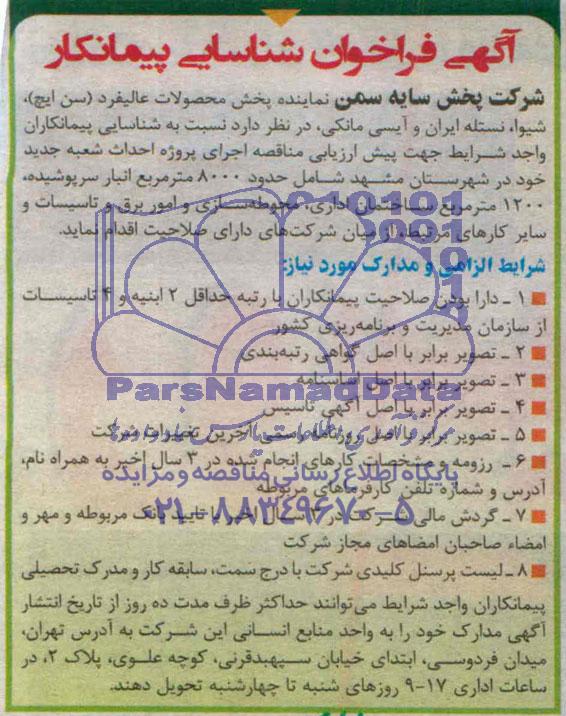 آگهی فراخوان شناسایی پیمانکار
شرکت پخش سایه سمن نماینده پخش محصولات عالیفرد (سن ایچ)،
شیوا، نستله ایران و آیسی مانکی، در نظر دارد نسبت به شناسایی پیمانکاران
واجد شرایط جهت پیش ارزیابی مناقصه اجرای پروژه احداث شعبه جدید
خود در شهرستان مشهد شامل حدود ۸۰۰۰ مترمربع انبار سرپوشیده،
۱۲۰۰ مترمربع ساختمان اداری، محوطه‌سازی و امور برق و تاسیسات و
سایر کارهای مرتبط، از میان شرکت‌های دارای صلاحیت اقدام نماید.
شرایط الزامی و مدارک مورد نیاز:
۱ ـ دارا بودن صلاحیت پیمانکاران با رتبه حداقل ۲ ابنیه و ۴ تاسیسات
از سازمان مدیریت و برنامه‌ریزی کشور
۲ ـ تصویر برابر با اصل گواهی رتبه‌بندی
۳ ـ تصویر برابر با اصل اساسنامه
ParsNamadData
۴ ـ تصویر برابر با اصل آگهی تاسیس
۵ ـ تصویر برابر با اصل روزنامه رسمی آخرین تغییرات شرکت
۶ ـ رزومه و مشخصات کارهای انجام شده در ۳ سال اخیر به همراه نام،
پایگاه اطلاع رسانی مناقصه و مزایده
آدرس و شماره تلفن کارفرماهای مربوطه
۰۲۱-۸۸۳۴۹۶۷۰-۵
۷ ـ گردش مالی شرکت در ۳ سال اخیر با تایید بانک مربوطه و مهر و
امضاء صاحبان امضاهای مجاز شرکت
۸ ـ لیست پرسنل کلیدی شرکت با درج سمت، سابقه کار و مدرک تحصیلی
پیمانکاران واجد شرایط می‌توانند حداکثر ظرف مدت ده روز از تاریخ انتشار
آگهی مدارک خود را به واحد منابع انسانی این شرکت به آدرس تهران،
میدان فردوسی، ابتدای خیابان سپهبدقرنی، کوچه علوی، پلاک ۲، در
ساعات اداری ۱۷-۹ روزهای شنبه تا چهارشنبه تحویل دهند.